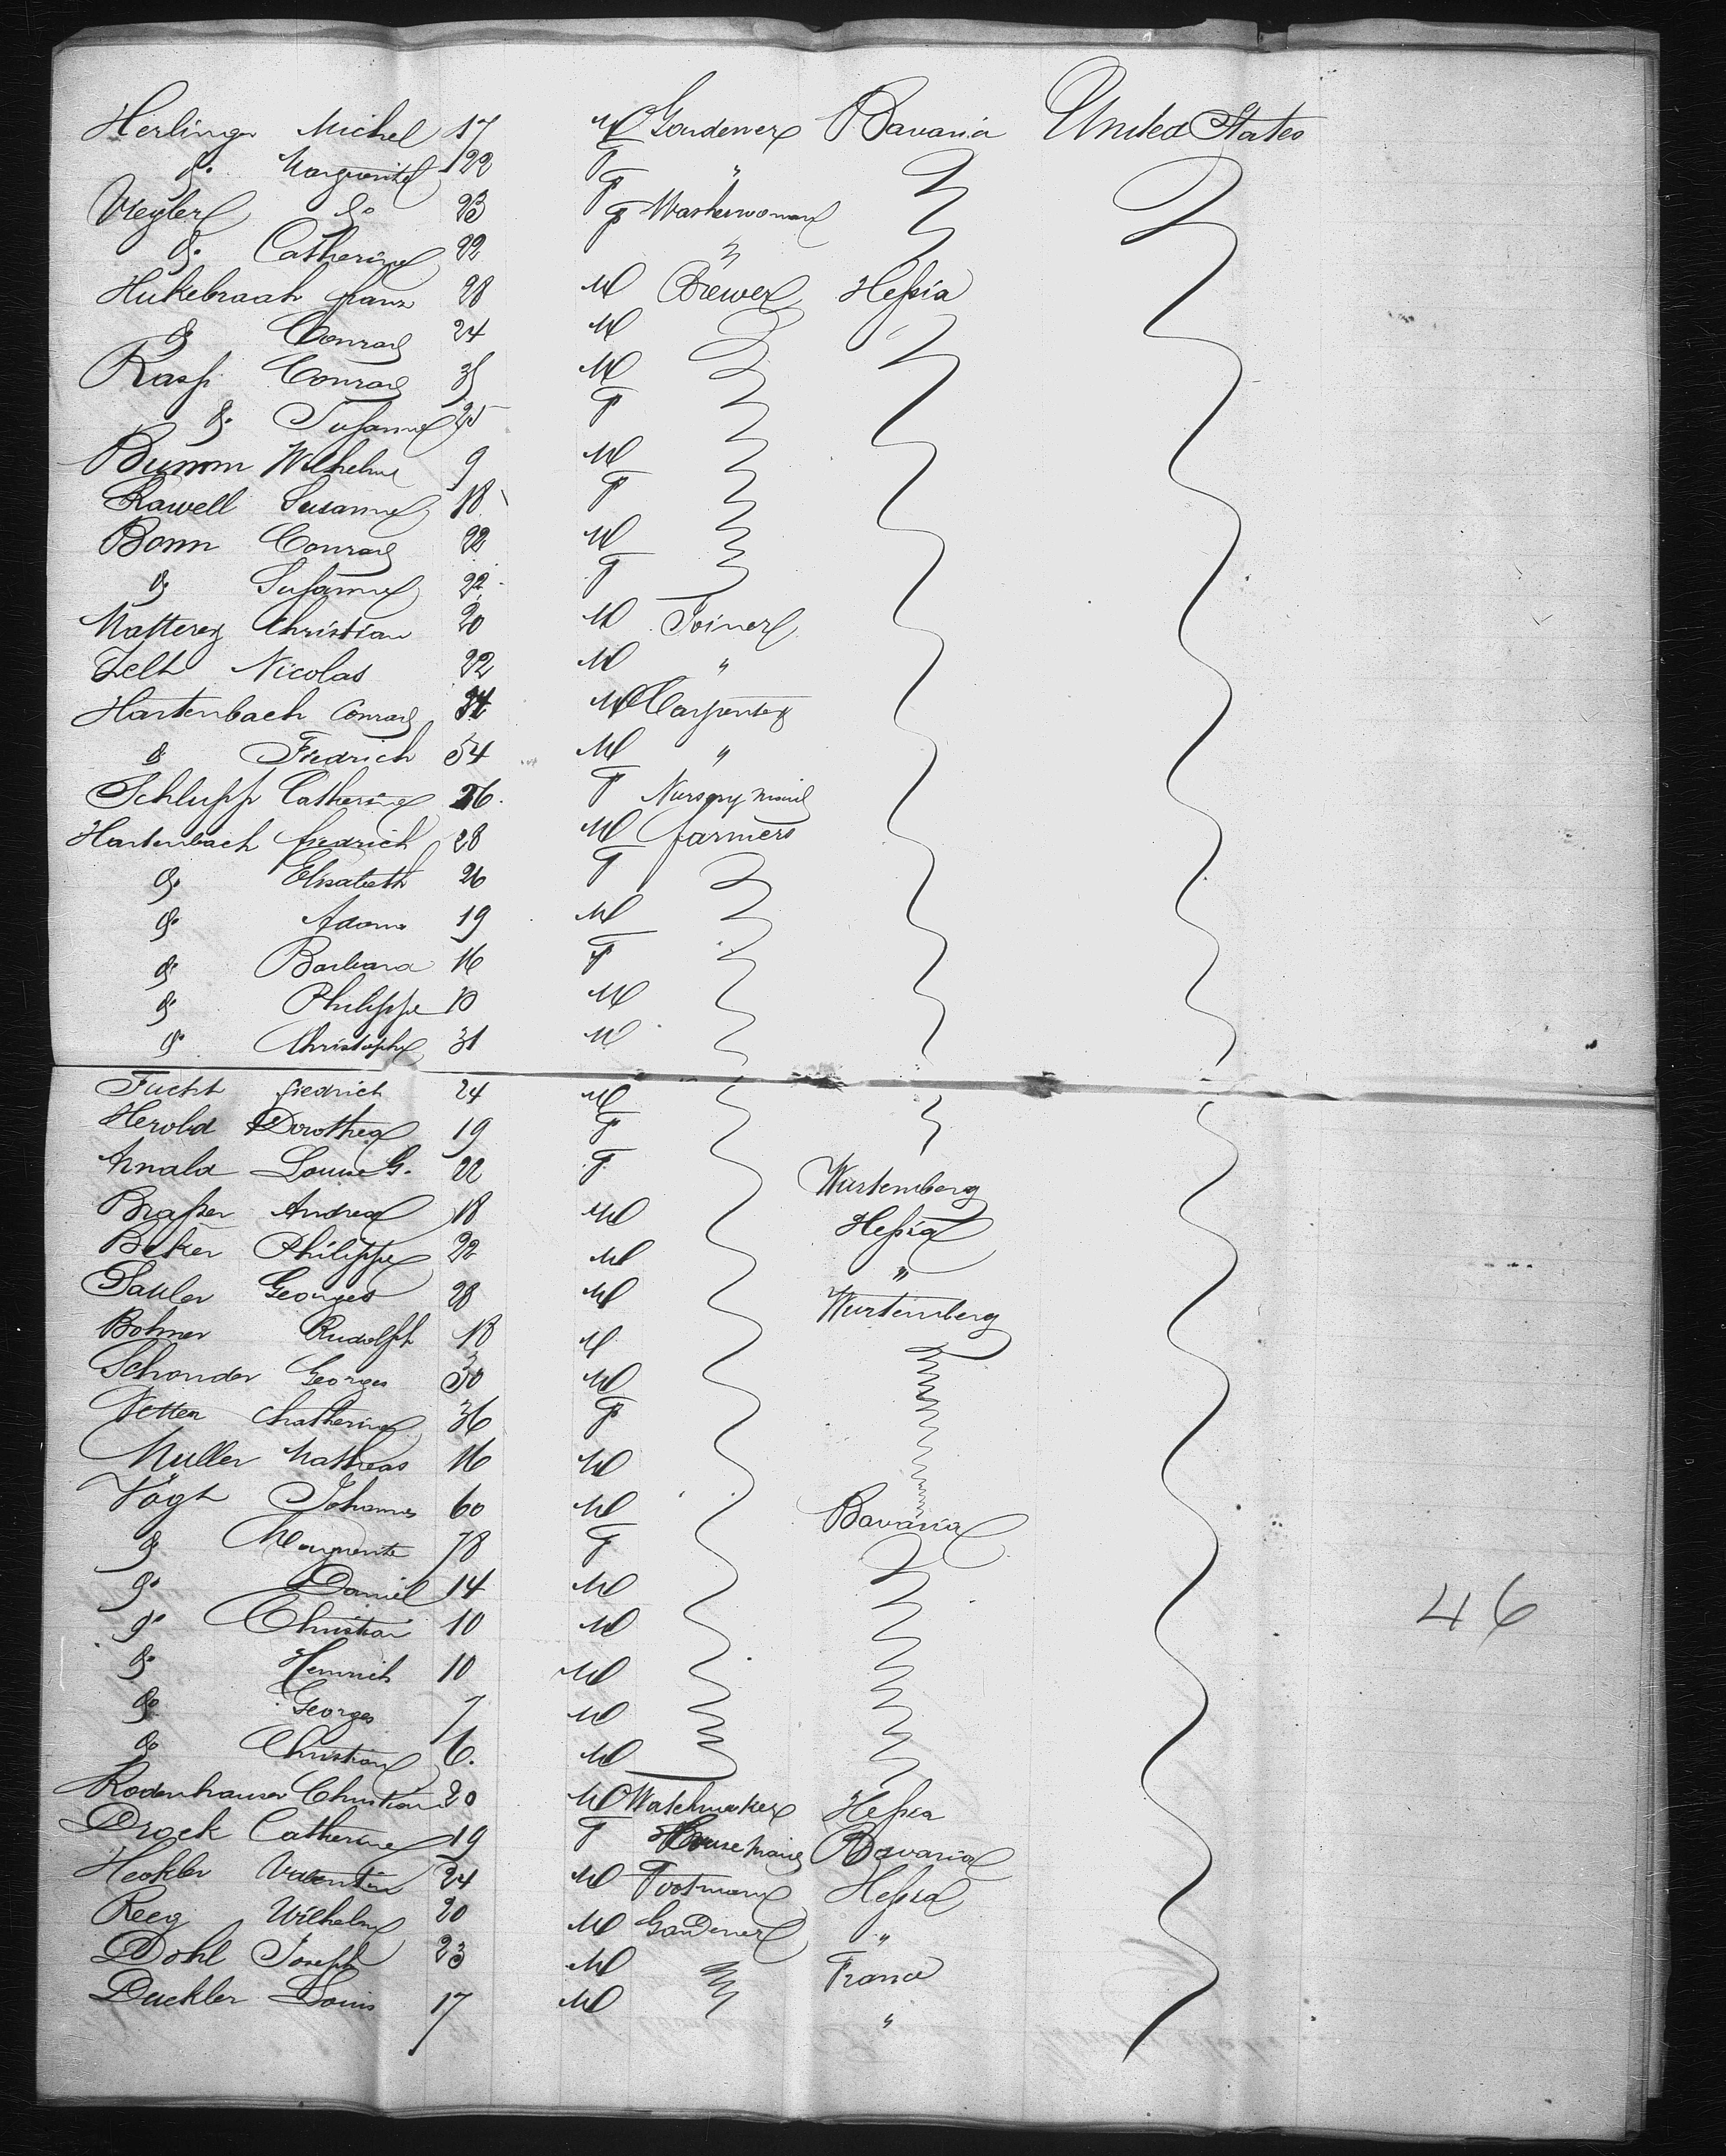 Herlinger Michel 17 M Gardener Bavaria United States
do Marguerite 22 F "
Weyler do 23 F Washerwoman
do Catherine 22 "
Hukebraah franz 28 M Brewer Hessia
do Conrad 24 M
Rasp Conrad 35 M
do Susanne 25 F
Bumm Wilhelm 9 M
Rawell Susanne 18 F
Bonn Conrad 22 M
do Susanne 22 F
Matterey Christian 20 M Joiner
Zelt Nicolas 22 M "
Hartenbach Conrad 34 M Carpenter
do Fredrich 54 M "
Schlupp Catherine 26 F Nursery maid
Hartenbach fredrich 28 M farmers
do Elisabeth 26 F
do Adam 19 M
do Barbara 16 F
do Philippe 10 M
do Christophe 31 M
Fucht fredrich 24 M
Herold Dorothea 19 F
Arnald Louise G. 22 F Wurtemberg
Brasser Andrea 18 M Hessia
Beker Philippe 22 M "
Sauler Georges 28 M Wurtemberg
Bohmer Rudolph 18 M
Schonder Georges 30 M
Vetter Chatherine 36 F
Muller Matheas 16 M
Vogt Johannes 60 M Bavaria
do Marguerite 78 F
do Daniel 14 M
do Christian 10 M
do Heinrich 10 M
do Georges 7 M
do Christian 6. M
Rodenhauser Christian 20 M Watchmaker Hessia
Drock Catherine 19 F House maid Bavaria
Heckler Valentin 24 M Footman Hessia
Reeg Wilhelm 20 M Gardener "
Dohl Joseph 23 M France
Duckler Louis 17 M "
46